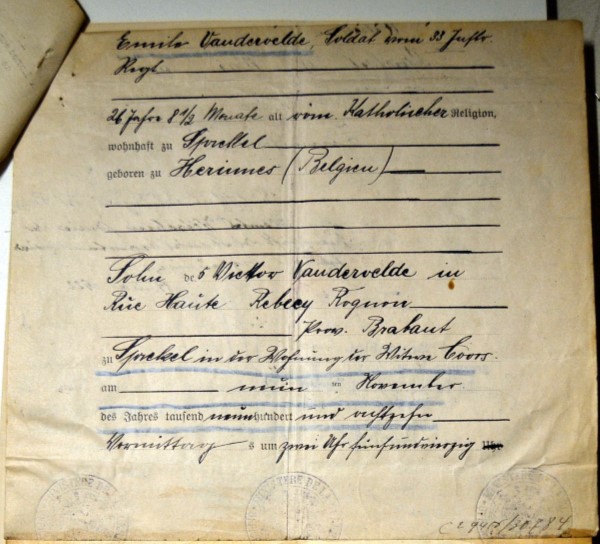 Emile Vandervelde, Soldat vom 33 Inftr.
Regt
26 Jahre 8 1/2 Monate alt röm. Katholischer Religion,
wohnhaft zu Sprekel
geboren zu Herinnes (Belgien)
Sohn des Victor Vandervelde in
Rue Haute Rebecq Rognon
Prov. Brabant
zu Sprekel in der Wohnung der Witwe Coors.
am neun ten November
des Jahres tausend neunhundert und achtzehn
Vormittag s um zwei Uhr fünfundvierzig Uhr
MINISTERE DE L
MINISTERE DE L